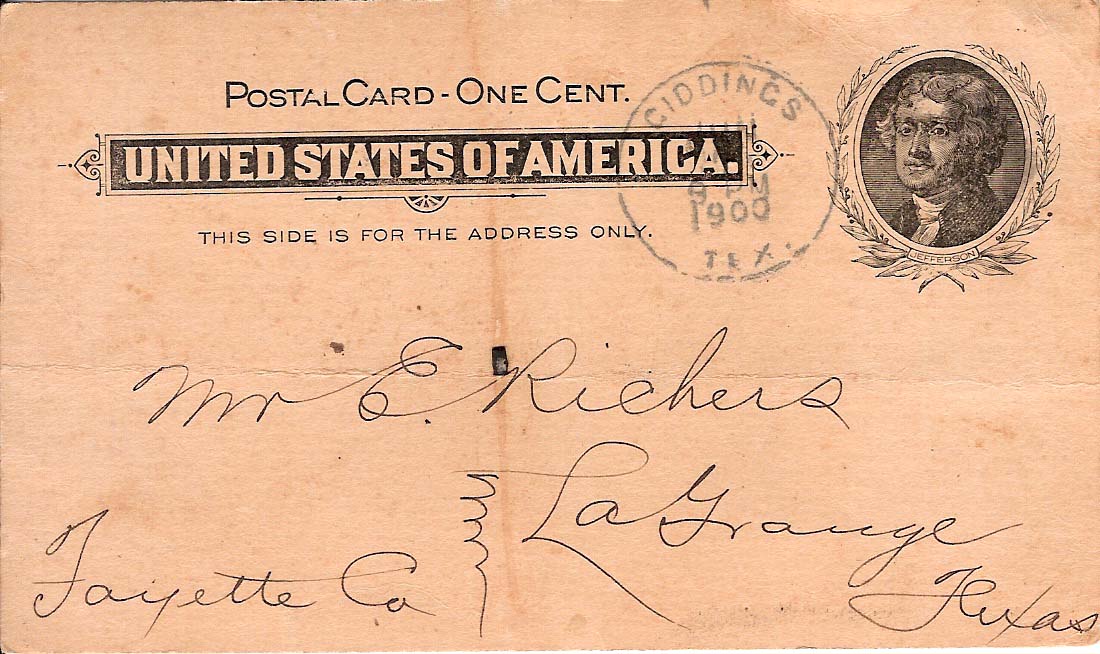 POSTAL CARD - ONE CENT.
UNITED STATES OF AMERICA.
THIS SIDE IS FOR THE ADDRESS ONLY.
GIDDINGS
PM
1900
TEX.
JEFFERSON
Mr E. Richers
La Grange
Fayette Co
Texas